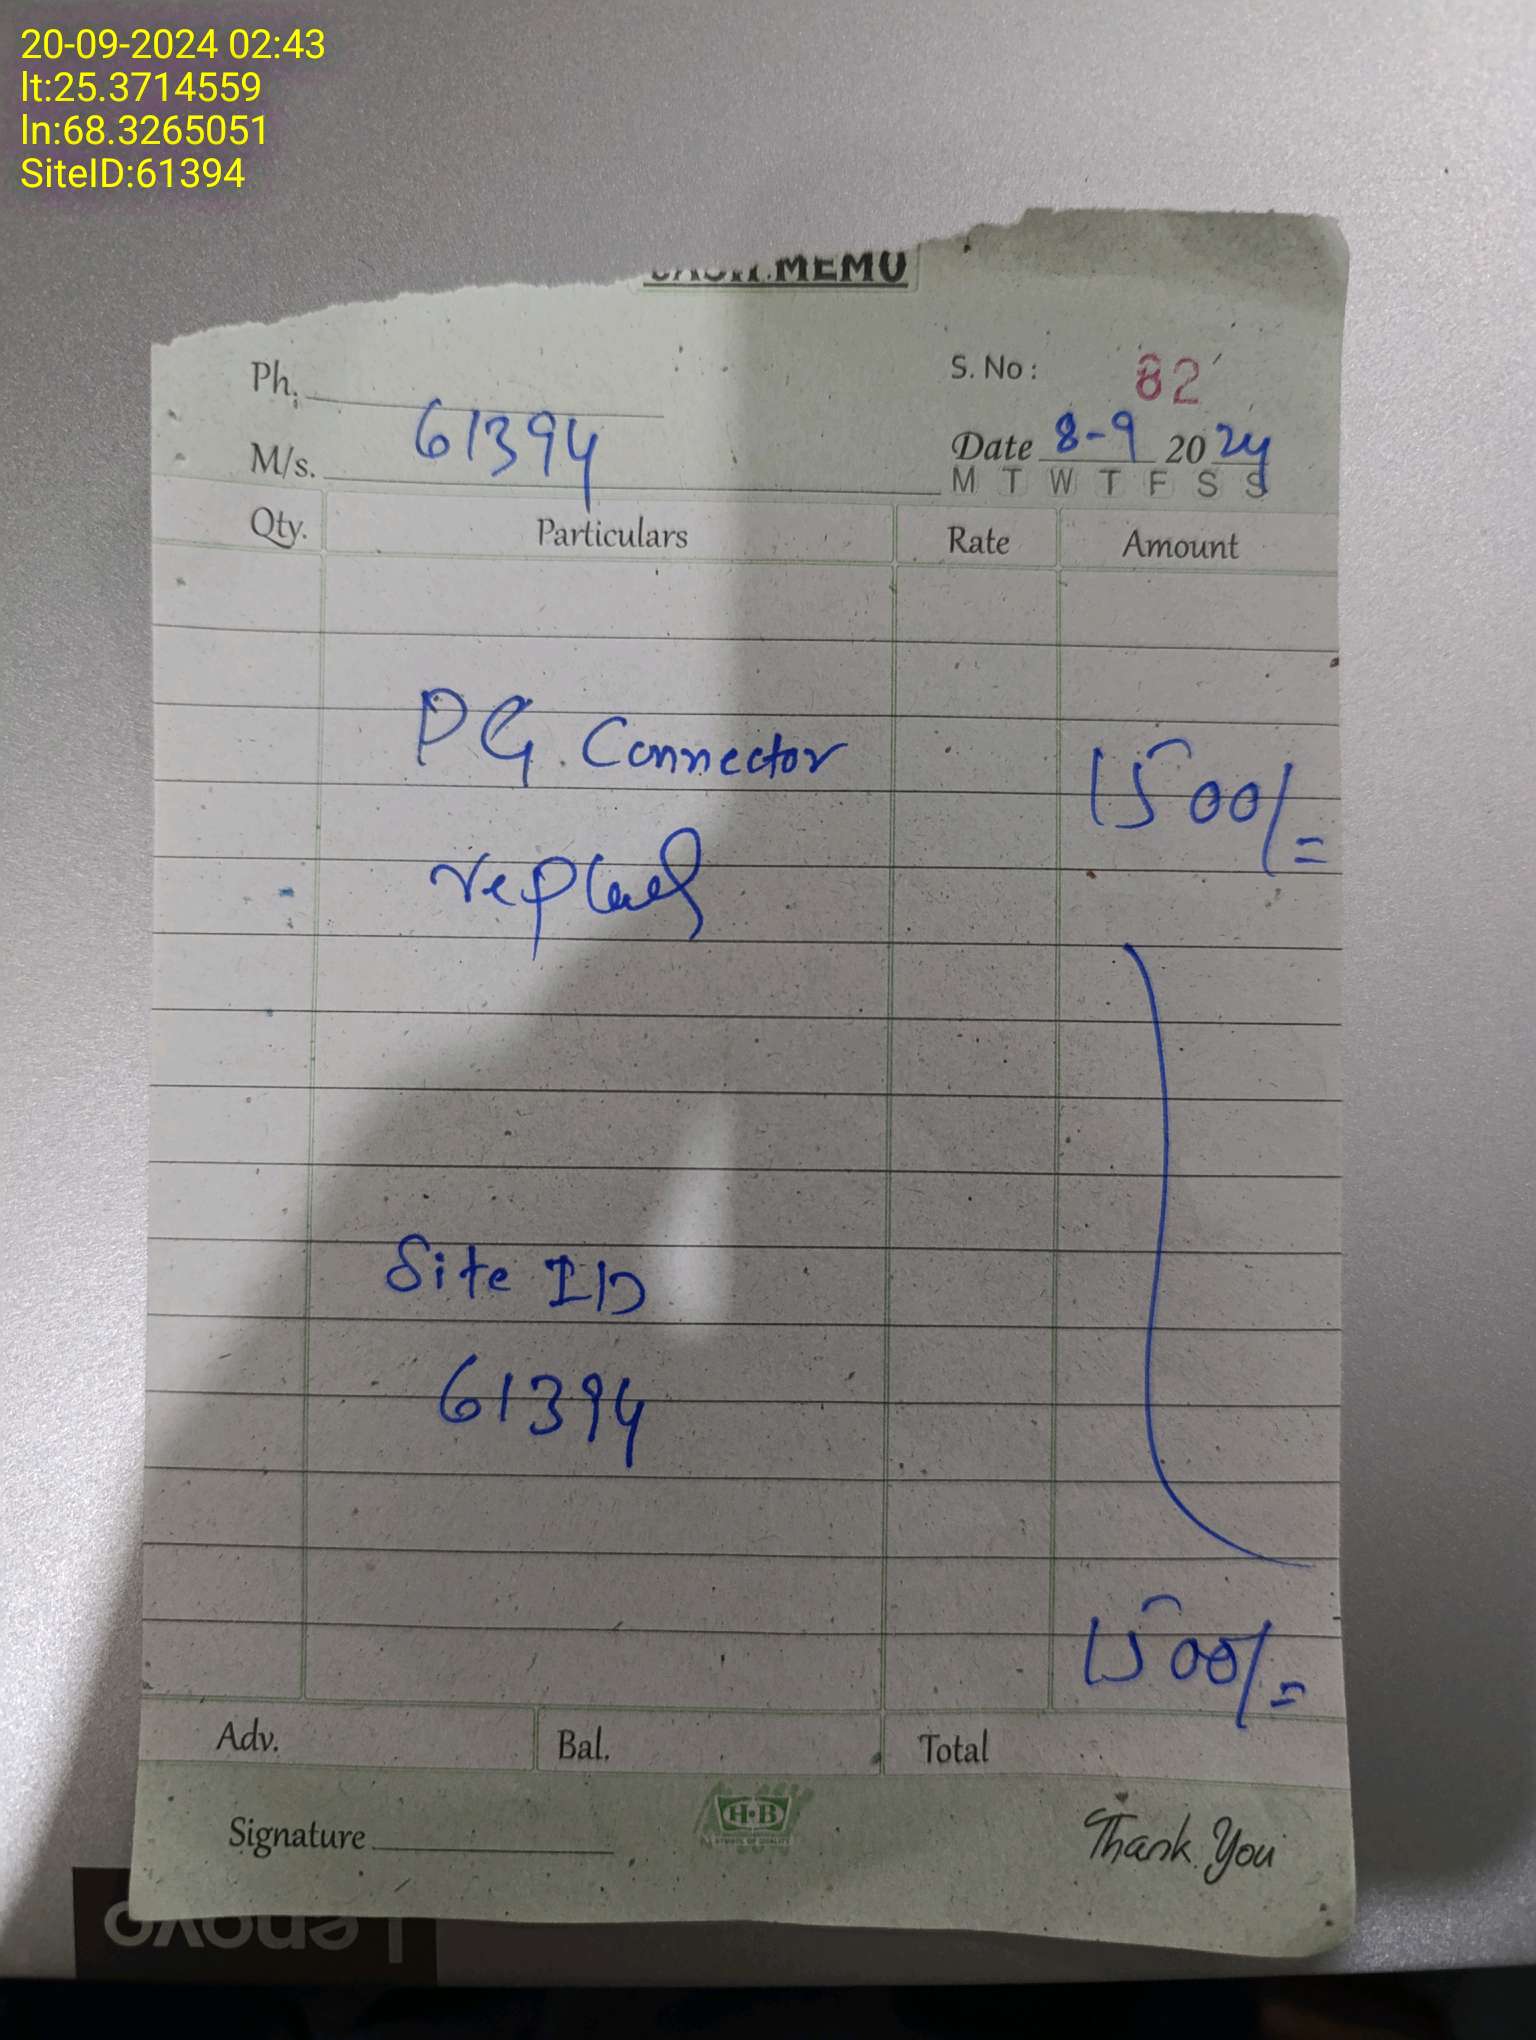 20-09-2024 02:43
lt:25.3714559
ln:68.3265051
SiteID:61394
CASH.MEMO
Ph.
S. No : 82
M/s. 61394
Date 8-9 2024
M T W T F S S
Qty. Particulars Rate Amount
PG. Connector 1500/=
Site ID
61394
1500/=
Adv. Bal. Total
H·B
Signature
Thank You
Lenovo